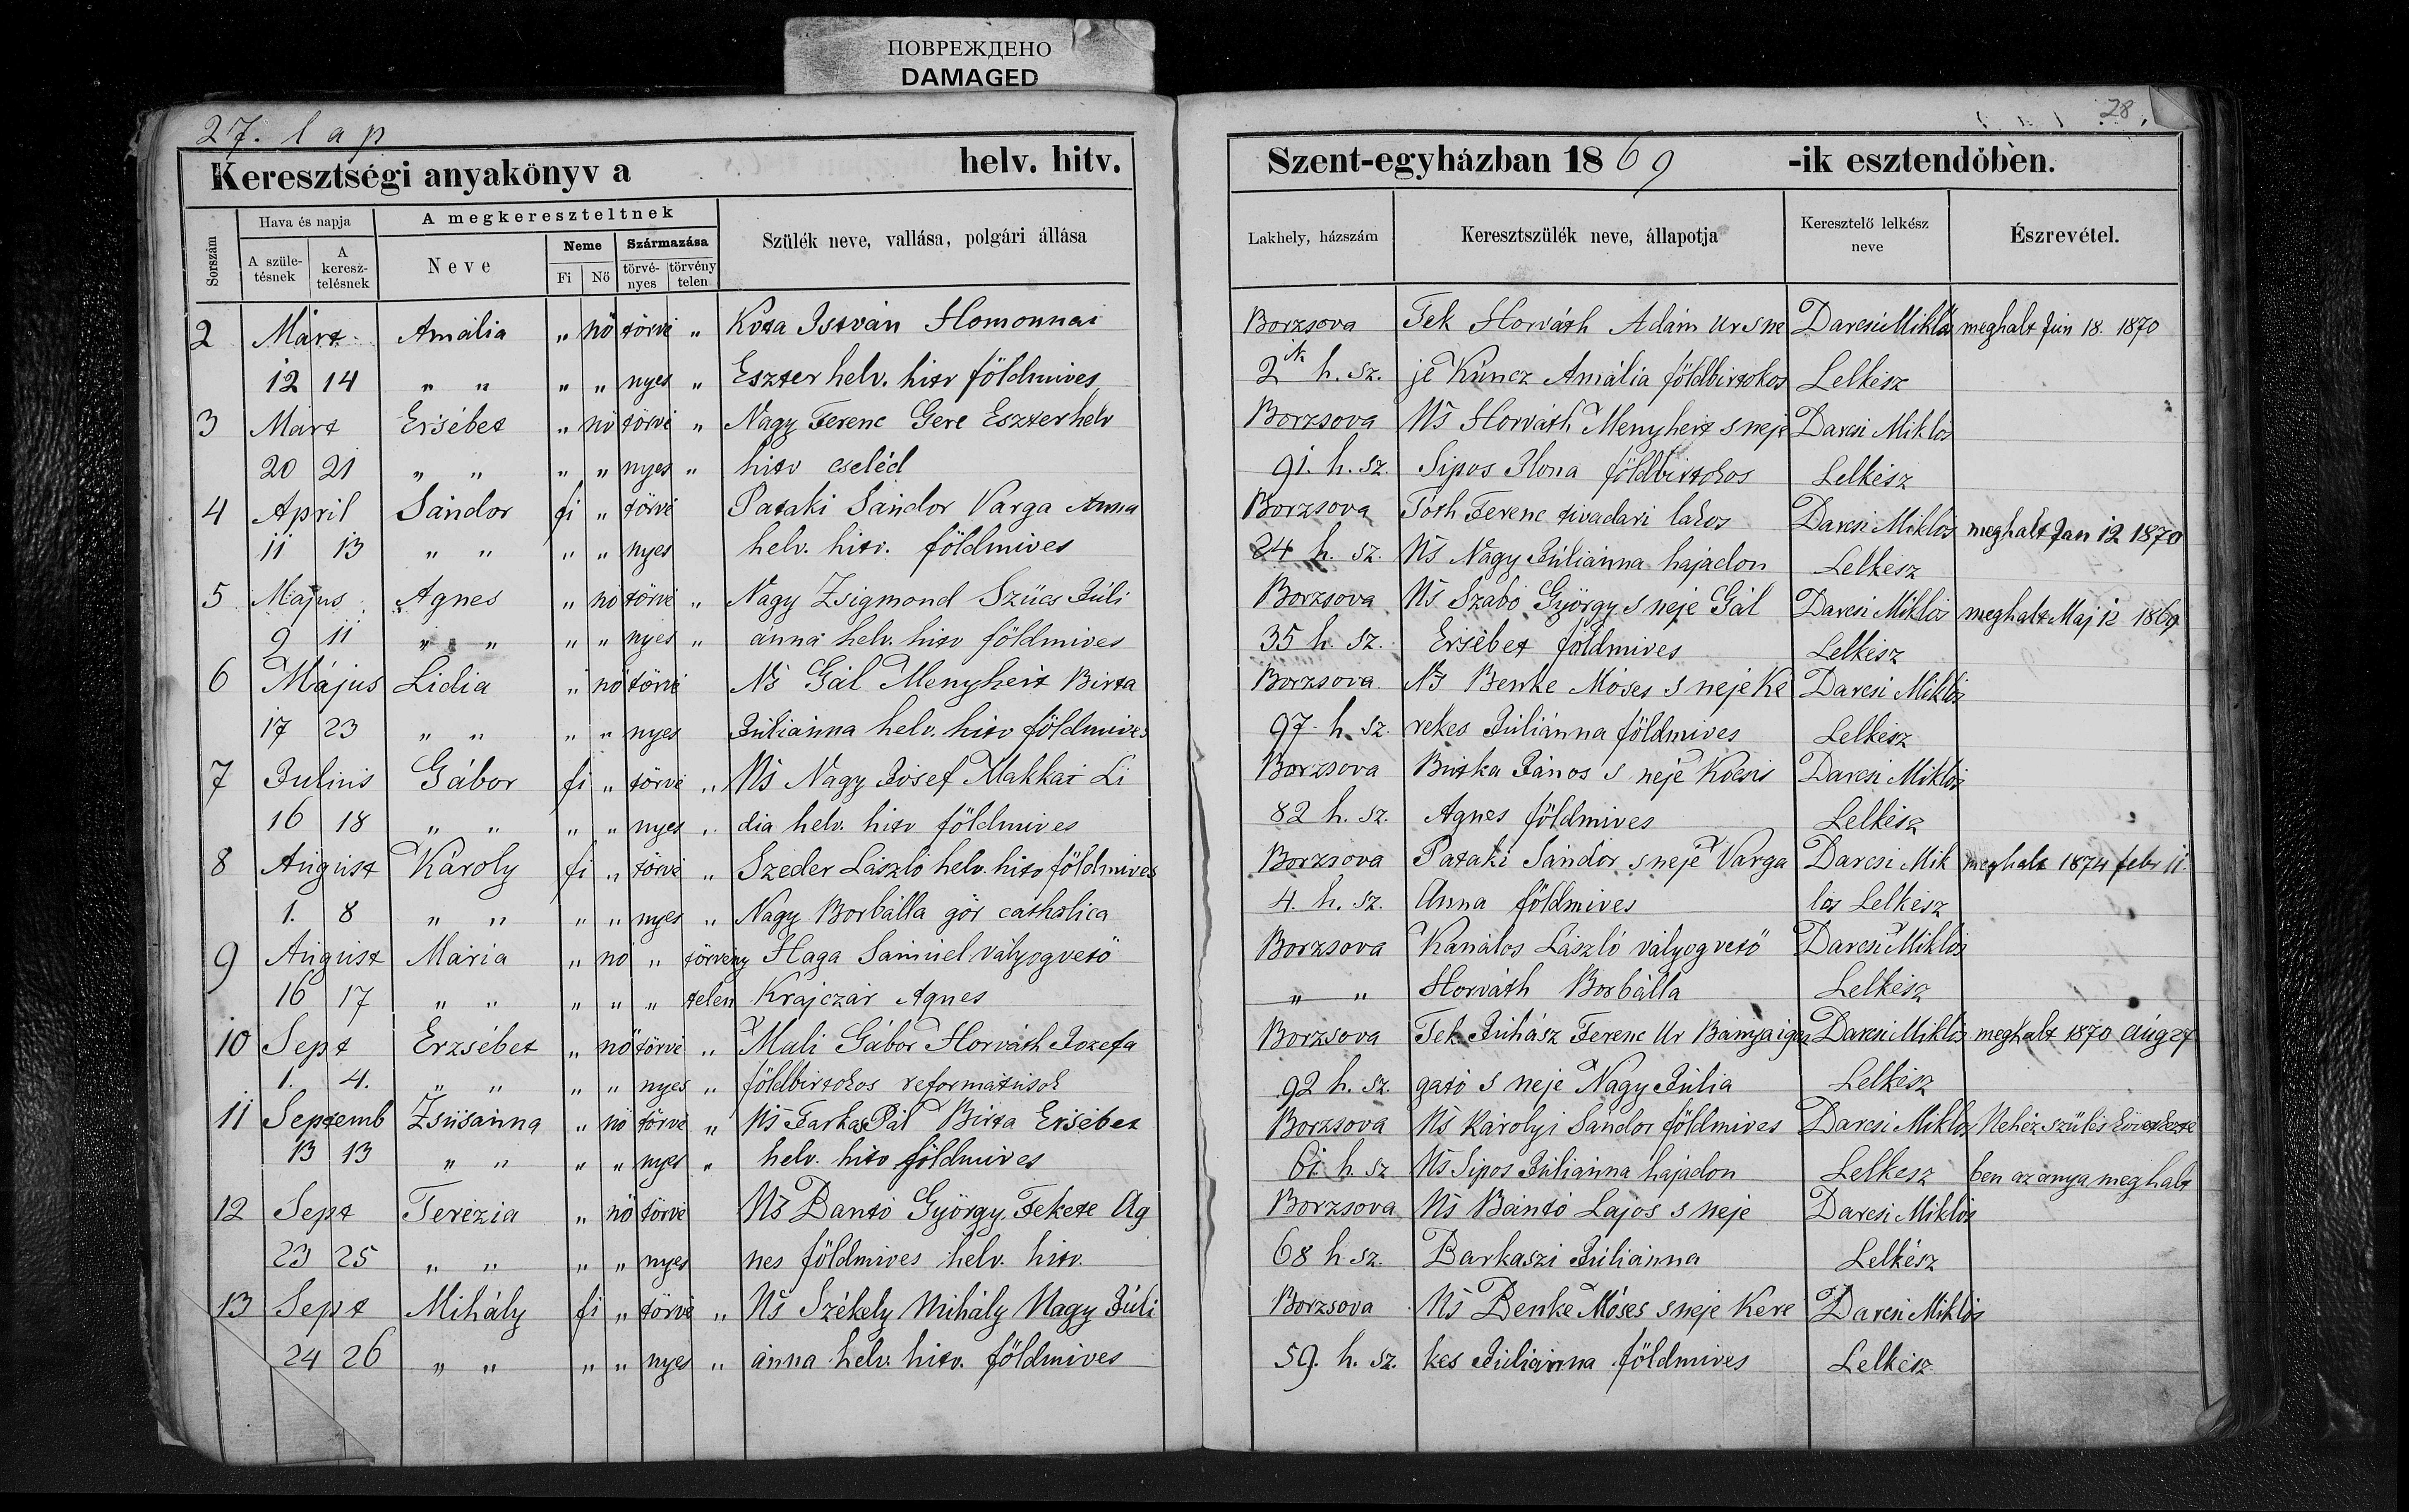 ПОВРЕЖДЕНО
DAMAGED
27. lap
28.
Keresztségi anyakönyv a helv. hitv. Szent-egyházban 1869 -ik esztendőben.
Sorszám Hava és napja A megkereszteltnek Szülék neve, vallása, polgári állása Lakhely, házszám Keresztszülék neve, állapotja Keresztelő lelkész neve Észrevétel.
A születésnek A keresztelésnek Neve Neme Származása
Fi Nő törvényes törvénytelen
2 Márt. Amália „ nő törvé „ Kota István Homonnai Borzsova Tek Horváth Ádám Ur s ne Darcsi Miklós meghalt Jun 18. 1870
12 14 „ „ „ „ nyes „ Eszter helv. hitv földmives 2 h. sz. je Kuncz Amália földbirtokos Lelkész
3 Márt Ersébet „ nő törvé „ Nagy Ferenc Gere Eszter helv Borzsova Ns Horváth Menyhert s neje Darcsi Miklós
20 21 „ „ „ „ nyes „ hitv cseléd 91. h. sz. Sipos Ilona földbirtokos Lelkész
4 April Sándor fi „ törvé Pataki Sándor Varga Anna Borzsova Tóth Ferenc tivadari lakos Darcsi Miklós meghalt Jan 12 1870
11 13 „ „ „ „ nyes helv. hitv. földmives 24 h. sz. Ns Nagy Juliánna hajadon Lelkész
5 Május Agnes „ nő törvé „ Nagy Zsigmond Szücs Juli Borzsova Ns Szabó György s neje Gál Darcsi Miklós meghalt Maj 12 1869
9 11 „ „ „ „ nyes „ ánna helv. hitv földmives 35 h. sz. Ersébet földmives Lelkész
6 Május Lidia „ nő törvé Ns Gál Menyhért Birta Borzsova Ns Benke Móses s neje Ke Darcsi Miklós
17 23 „ „ „ „ nyes Juliánna helv. hitv földmives 97. h. sz. rekes Juliánna földmives Lelkész
7 Julius Gábor fi „ törvé „ Ns Nagy Jósef Makkai Li Borzsova Butka János s neje Kocsis Darcsi Miklós
16 18 „ „ „ „ nyes „ dia helv. hitv földmives 82 h. sz. Agnes földmives Lelkész
8 August Károly fi „ törvé „ Szeder László helv. hitv földmives Borzsova Pataki Sándor s neje Varga Darcsi Mik meghalt 1874 febr 11.
1. 8 „ „ „ „ nyes „ Nagy Borbálla gör catholica 4. h. sz. Anna földmives lós Lelkész
9 August Mária „ nő „ törvény Haga Sámuel vályogvető Borzsova Kanálos László vályogvető Darcsi Miklós
16 17 „ „ „ „ „ telen Krajczár Agnes „ „ Horváth Borbálla Lelkész
10 Sept Erzsébet „ nő törvé „ Mali Gábor Horváth Jozefa Borzsova Tek Juhász Ferenc Ur Bányaigaz Darcsi Miklós meghalt 1870 aug 27
1. 4. „ „ „ „ nyes „ földbirtokos reformátusok 92 h. sz. gató s neje Nagy Júlia Lelkész
11 Septemb Zsusánna „ nő törvé „ Ns Farkas Pál Birta Ersébet Borzsova Ns Károlyi Sándor földmives Darcsi Miklós Nehéz szülés következté
13 13 „ „ „ „ nyes „ helv. hitv földmives 61 h. sz Ns Sipos Juliánna hajadon Lelkesz ben az anya meghalt
12 Sept Terézia „ nő törvé Ns Bantó György Fekete Ag Borzsova Ns Bántó Lajos s neje Darcsi Miklós
23 25 „ „ „ „ nyes nes földmives helv. hitv. 68 h. sz. Barkaszi Juliánna Lelkész
13 Sept Mihály fi „ törvé „ Ns Székely Mihály Nagy Juli Borzsova Ns Benke Móses s neje Kere Darcsi Miklós
24 26 „ „ „ „ nyes „ ánna helv. hitv. földmives 59. h. sz. kes Juliánna földmives Lelkész